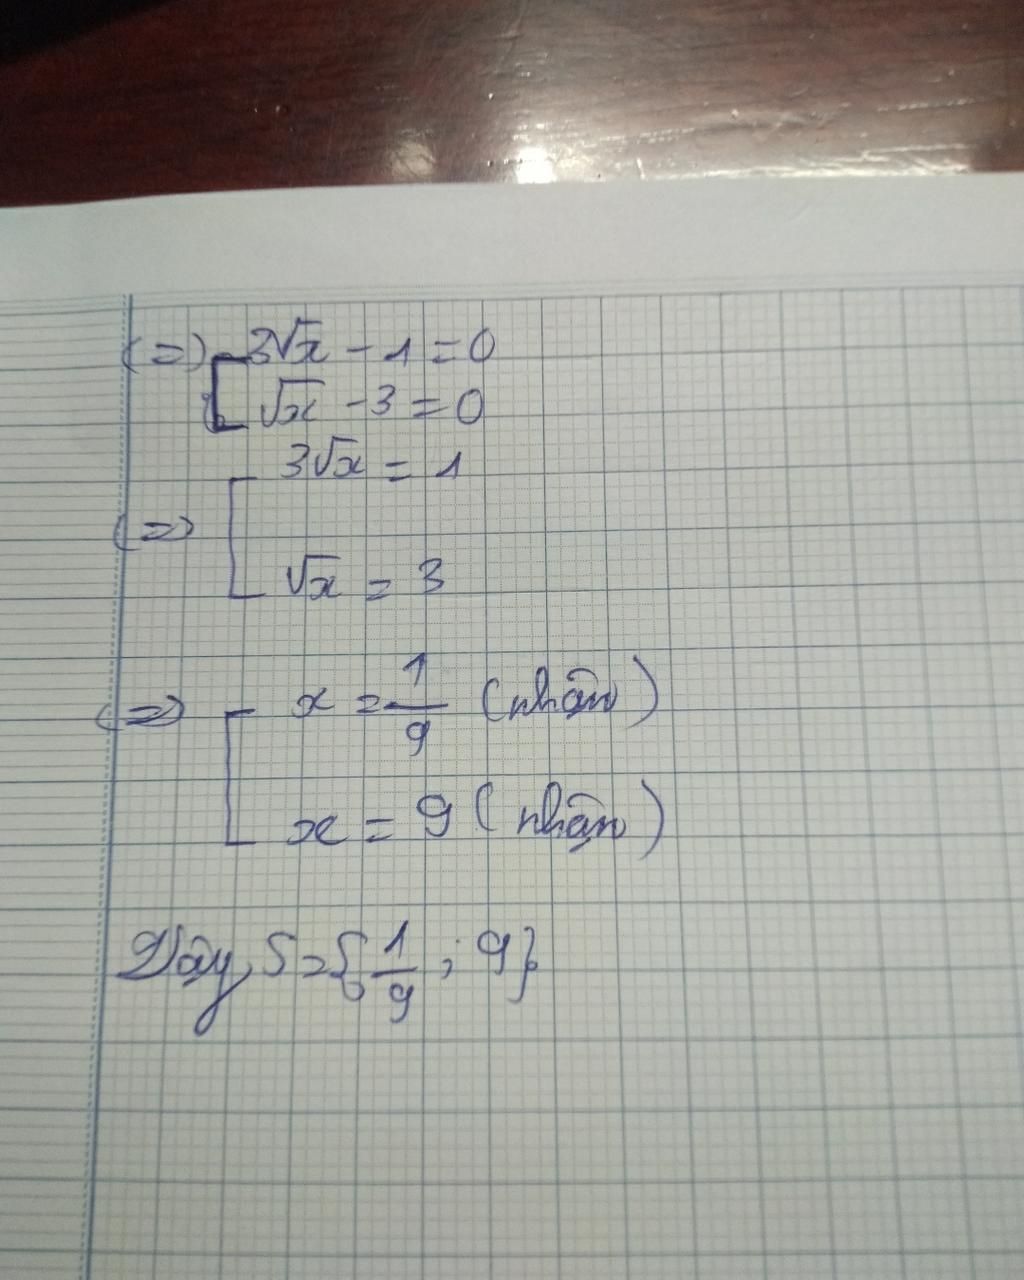 (=) [ 3√x - 1 = 0
√x - 3 = 0
3√x = 1
(=) [
√x = 3
(=) [ x = 1/9 (nhận)
x = 9 (nhận)
Vậy, S = { 1/9 ; 9}